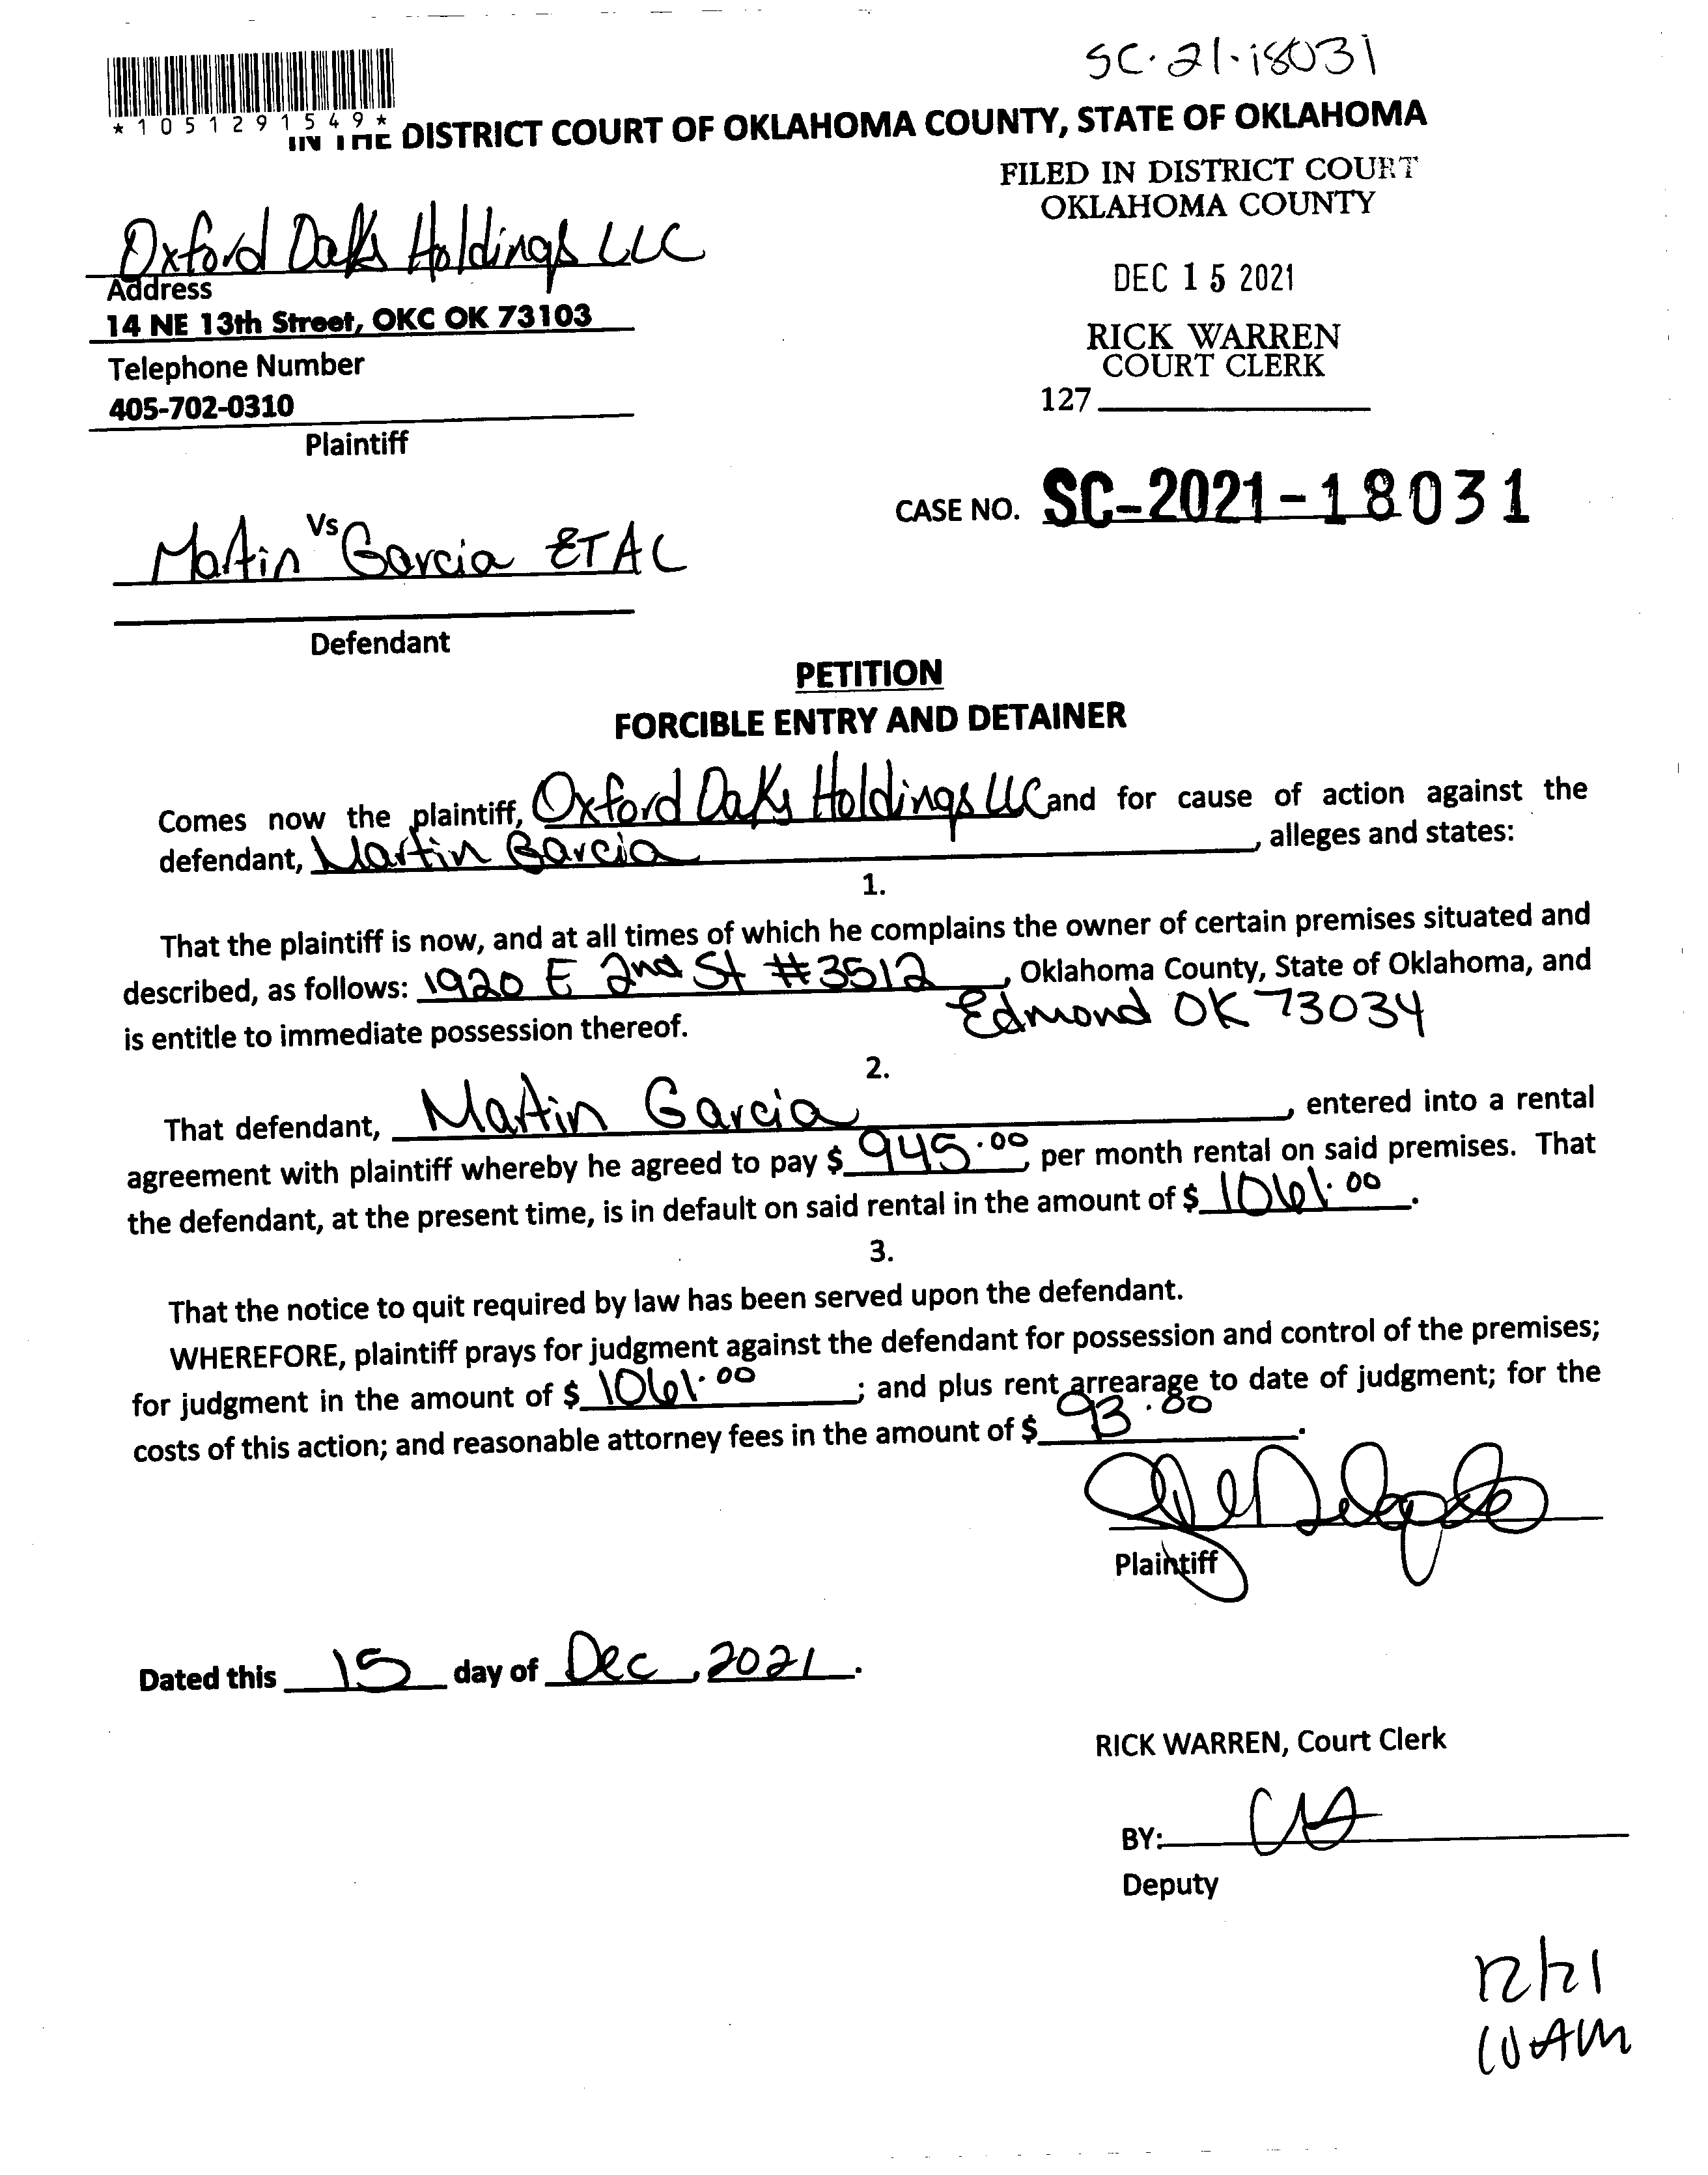 SC·21·18031
*1051291549*
IN THE DISTRICT COURT OF OKLAHOMA COUNTY, STATE OF OKLAHOMA
FILED IN DISTRICT COURT
OKLAHOMA COUNTY
Oxford Oaks Holdings LLC
Address
14 NE 13th Street, OKC OK 73103
Telephone Number
405-702-0310
Plaintiff
DEC 15 2021
RICK WARREN
COURT CLERK
127
CASE NO. SC-2021-18031
Vs
Martin Garcia ETAL
Defendant
PETITION
FORCIBLE ENTRY AND DETAINER
Comes now the plaintiff, Oxford Oaks Holdings LLC and for cause of action against the
defendant, Martin Garcia, alleges and states:
1.
That the plaintiff is now, and at all times of which he complains the owner of certain premises situated and
described, as follows: 1920 E 2nd St #3512, Oklahoma County, State of Oklahoma, and
Edmond OK 73034
is entitle to immediate possession thereof.
2.
That defendant, Martin Garcia, entered into a rental
agreement with plaintiff whereby he agreed to pay $ 945.00 per month rental on said premises. That
the defendant, at the present time, is in default on said rental in the amount of $ 1061.00.
3.
That the notice to quit required by law has been served upon the defendant.
WHEREFORE, plaintiff prays for judgment against the defendant for possession and control of the premises;
for judgment in the amount of $ 1061.00; and plus rent arrearage to date of judgment; for the
costs of this action; and reasonable attorney fees in the amount of $ 93.00.
Plaintiff
Dated this 15 day of Dec, 2021.
RICK WARREN, Court Clerk
BY:
Deputy
12/21
10 AM